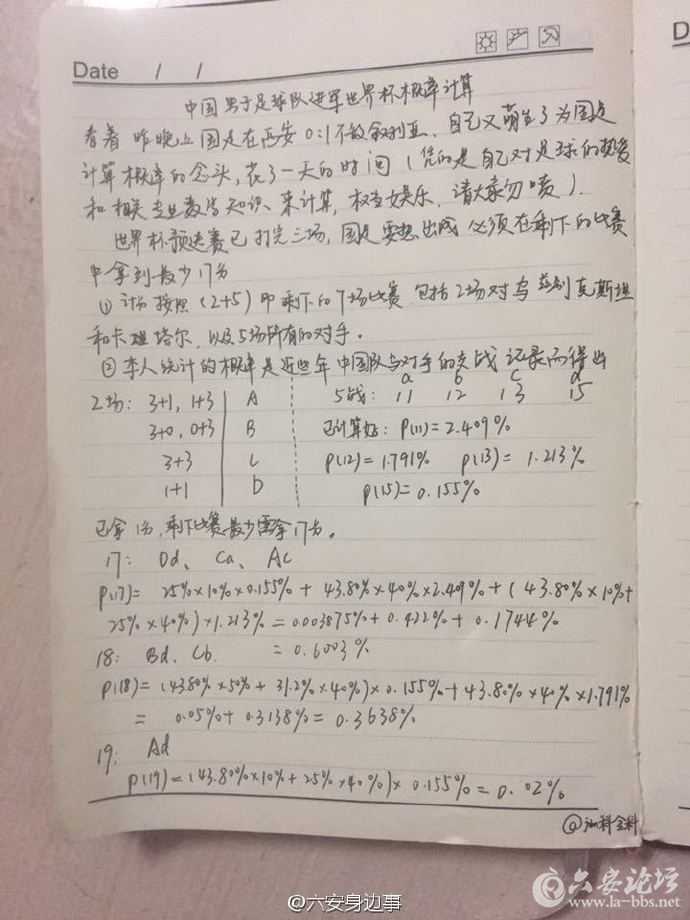 Date / /
中国男子足球队进军世界杯概率计算
看着昨晚上国足在西安0:1不敌叙利亚，自己又萌生了为国足
计算概率的念头，花了一天的时间（凭的是自己对足球的热爱
和相关专业数学知识来计算，权当娱乐，请大家勿喷）.
世界杯预选赛已打完三场，国足要想出线必须在剩下的比赛
中拿到最少17分
① 计分按照（2+5）即剩下的7场比赛 包括2场对乌兹别克斯坦
和卡塔尔，以及5场所有的对手.
② 本人统计的概率是近些年中国队与对手的交战记录而得出
2场: 3+1, 1+3 A 5战: 11 12 13 15
a b c d
3+0, 0+3 B 已计算好: P(11)=2.409%
3+3 C P(12)=1.791% P(13)=1.213%
1+1 D P(15)=0.155%
已拿1分，剩下比赛最少需拿17分。
17: Dd、Ca、Ac
P(17)= 25%×10%×0.155% + 43.80%×40%×2.409%+(43.80%×10%+
25%×40%)×1.213% = 0.003875%+0.422%+0.1744%
= 0.6003%
18: Bd、Cb
P(18)=(43.80%×50%+31.2%×40%)×0.155%+43.80%×40%×1.791%
= 0.05%+0.3138%=0.3638%
19: Ad
P(19)=(43.80%×10%+25%×40%)×0.155%=0.02%
@六安身边事
六安论坛
www.la-bbs.net